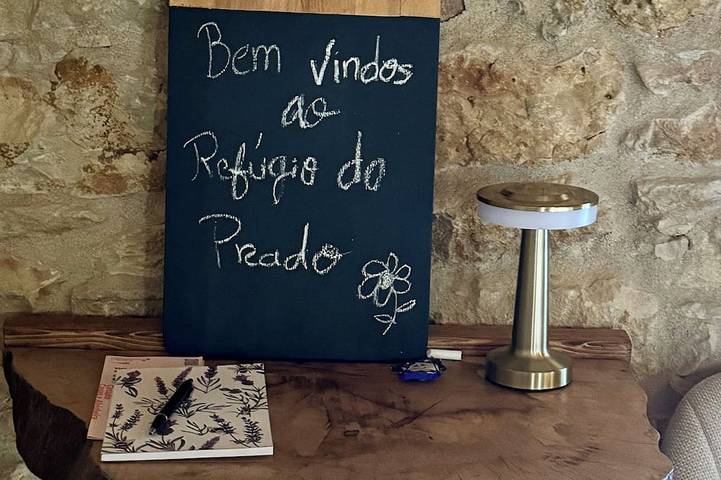 Bem vindos
ao
Refúgio do
Prado